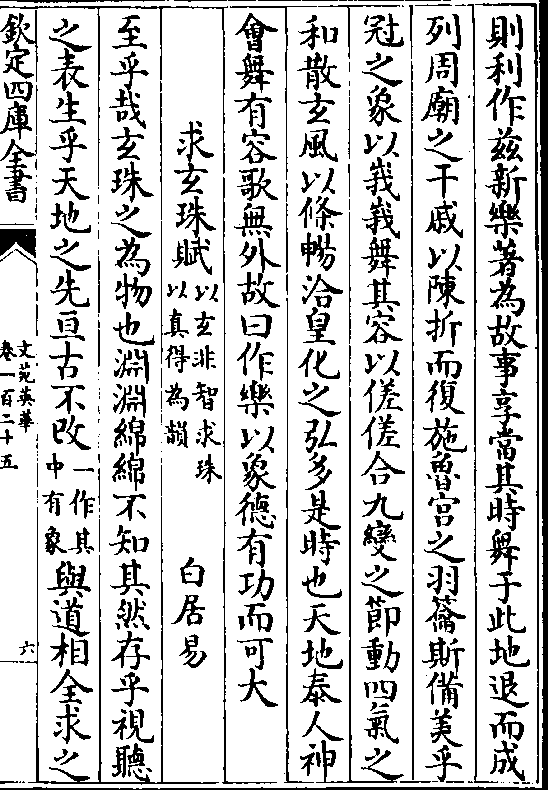 則利作茲新樂著為故事享當其時舞于此地退而成
列周廟之干戚以陳折而復施魯宮之羽籥斯備美乎
冠之象以峩峩舞其容以傞傞合九變之節動四氣之
和散玄風以條暢洽皇化之弘多是時也天地泰人神
會舞有容歌無外故曰作樂以象德有功而可大
求玄珠賦以玄非智求珠以真得為韻 白居易
至乎哉玄珠之為物也淵淵綿綿不知其然存乎視聽
之表生乎天地之先亘古不改一作其中有象與道相全求之
欽定四庫全書 文苑英華卷一百二十五 六